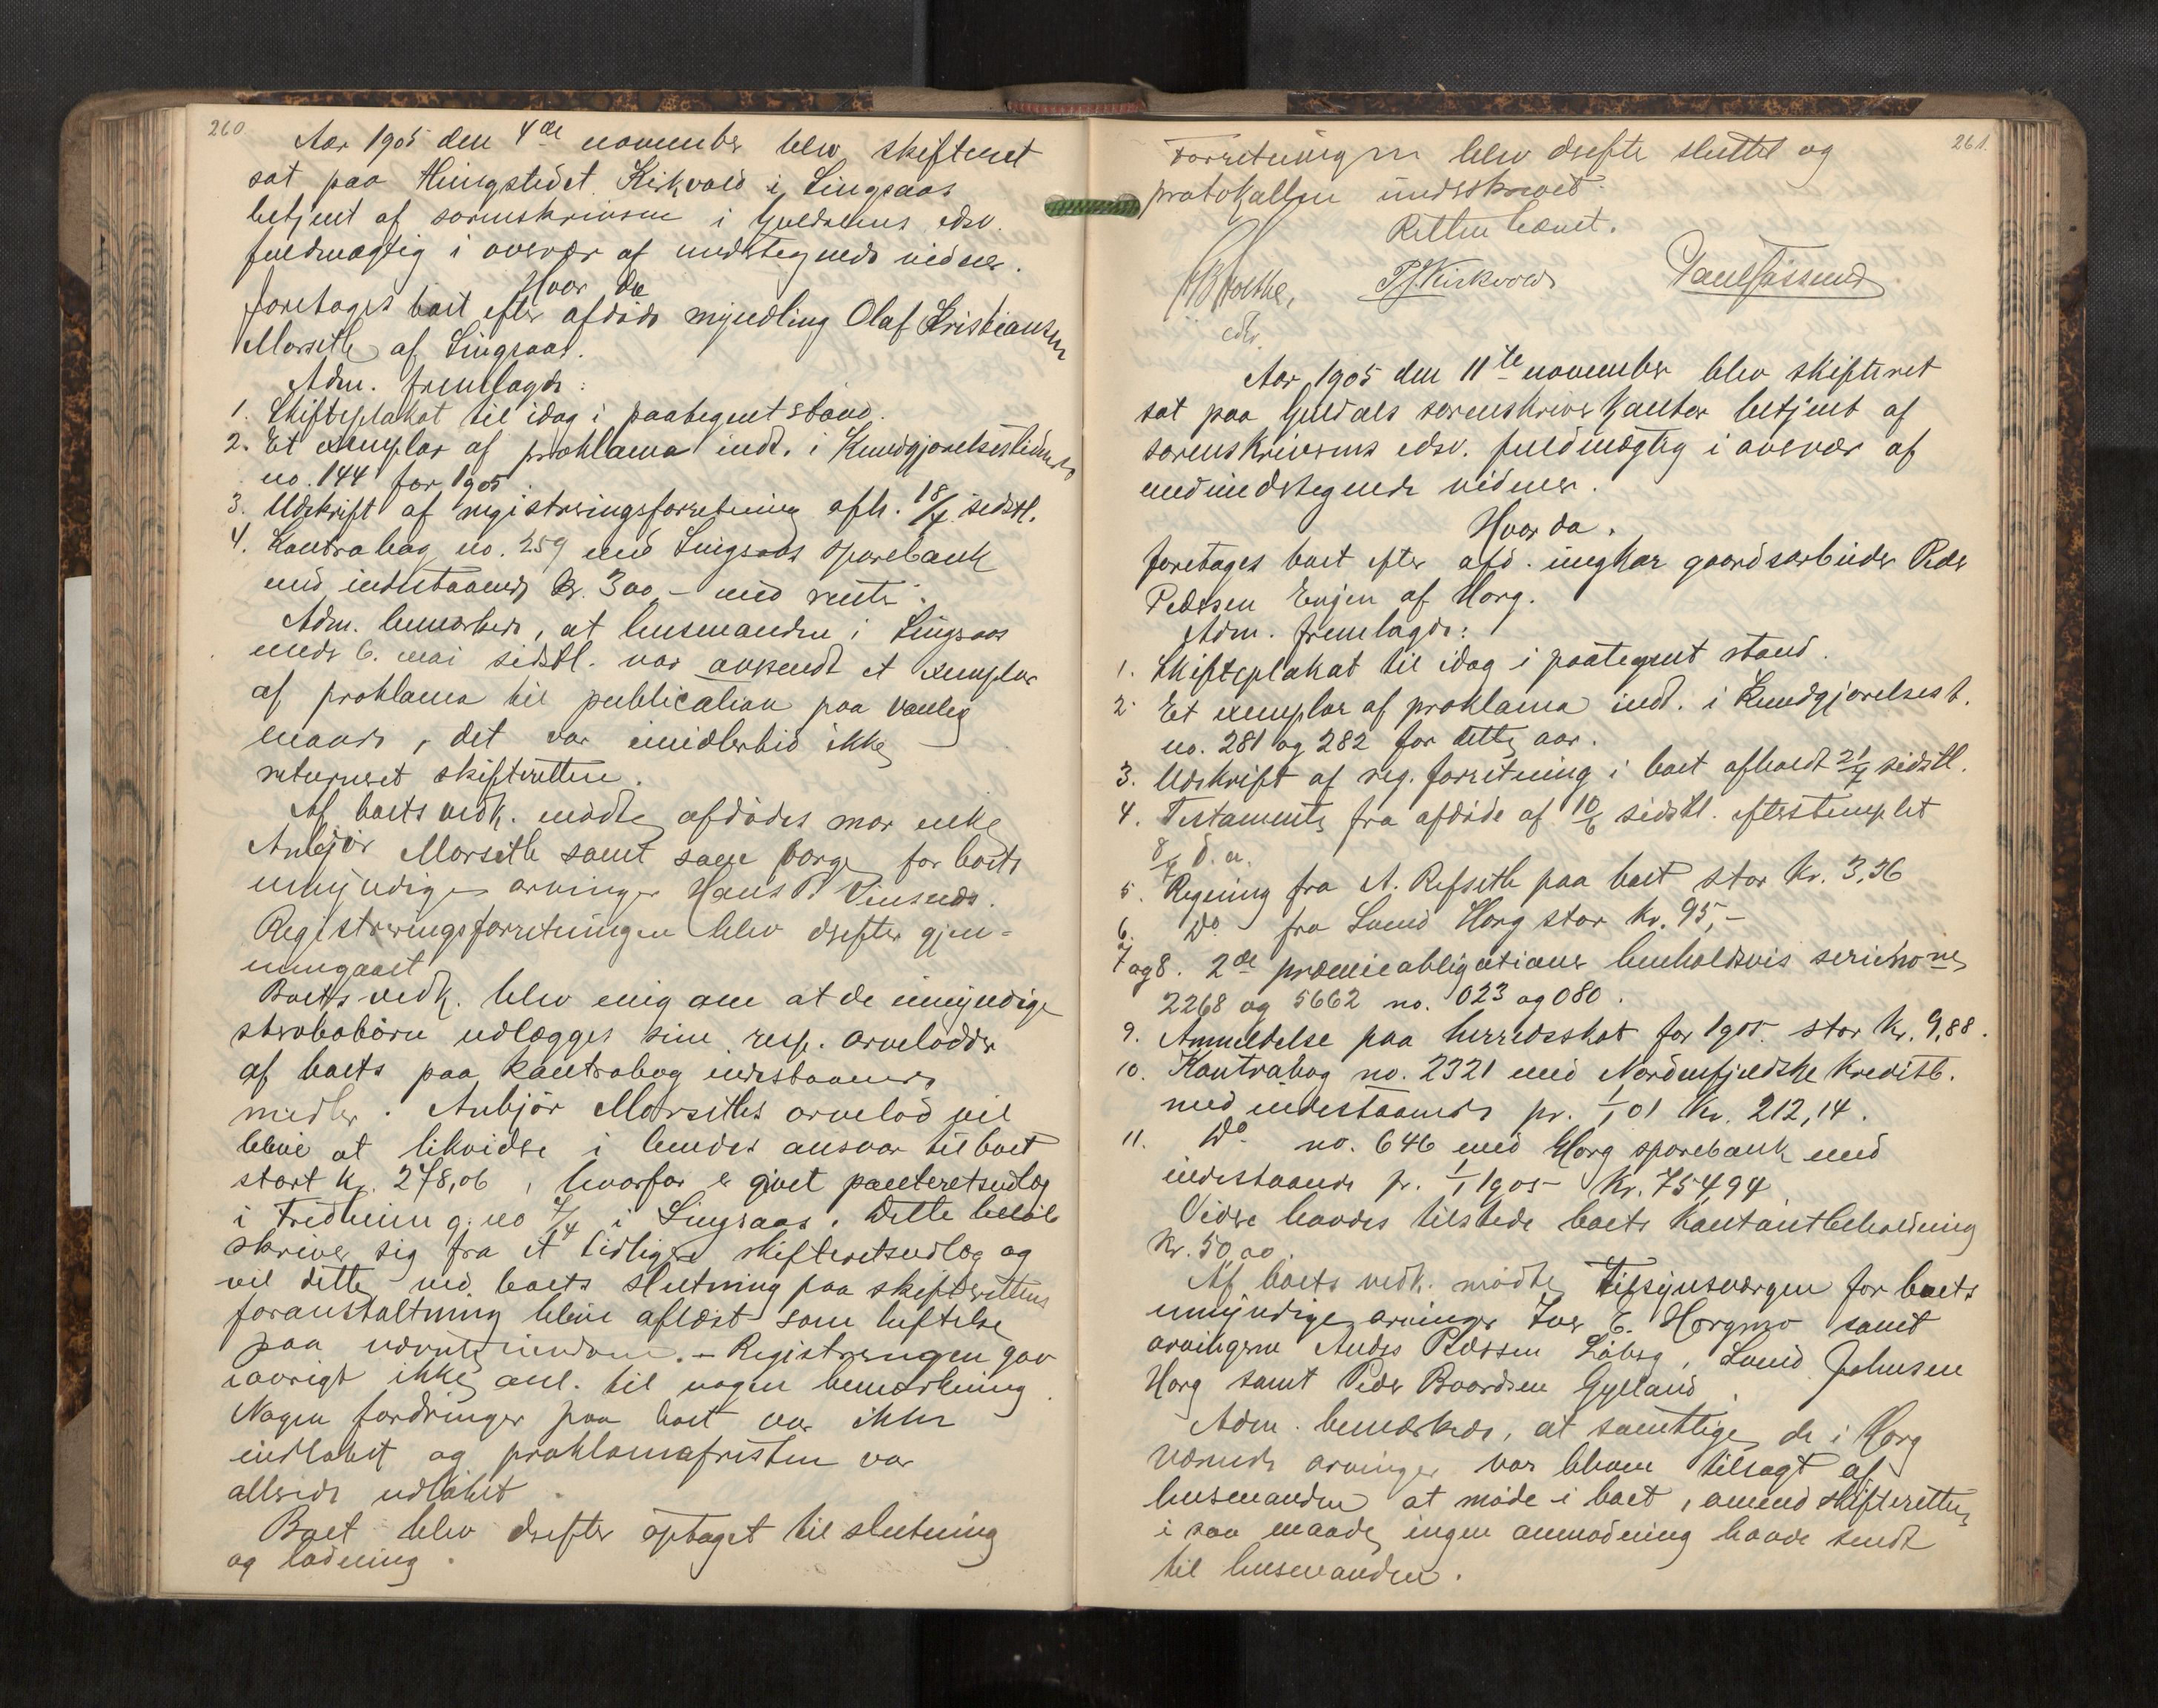 260
Aar 1905 den 4de november blev skifteret
sat paa thingstedet Kirkvold i Singsaas
betjent af sorenskriveren i Guldalens edsv.
fuldmægtig i overvær af undertegnede vidner.
Hvor da
foretoges boet efter afdøde myndling Olaf Kristiansen
Morseth af Singsaas.
Adm. fremlagde:
1. Skifteplakat til idag i paategnet stand.
2. Et exemplar af proklama indt. i Kundgjørelsestidende
no. 144 for 1905.
3. Udskrift af registreringsforretning afh. 18/4 sidstl.
4. Kontrabog no. 259 med Singsaas sparebank
med indestaaende kr. 300,- med rente.
Adm. bemærkede, at lensmanden i Singsaas
under 6. mai sidstl. var avsendt et exemplar
af proklama til publication paa vanlig
maade, det var imidlertid ikke
returneret skifteretten.
Af boets vedk. mødte afdødes mor enke
Anbjør Morseth samt som værge for boets
umyndige arvinger Hans P. Vinsnes.
Registreringsforretningen blev derefter gjen-
nemgaaet
Boets vedk. blev enig om at de umyndige
stervbobørn udlægges sine resp. arvelodder
af boets paa kontrabog indestaaende
midler. Anbjør Morseths arvelod vil
blive at likvidere i hendes ansvar til boet
stort kr. 278,06, hvorfor er givet panteretsudlæg
i Fredheim g. no 7/4 i Singsaas. Dette beløb
skriver sig fra et tidligere skifteretsudlæg og
vil dette ved boets slutning paa skifterettens
foranstaltning blive aflæst som heftelse
paa nævnte eiendom. - Registreringen gav
iøvrigt ikke anl. til nogen bemærkning.
Nogen fordringer paa boet var ikke
indløbet og proklamafristen var
allerede udløbet.
Boet blev derefter optaget til slutning
og lodning.
261.
Forretningen blev derefter sluttet og
protokollen underskrevet.
Retten hævet.
P. J. Kirkvold
edsv.
Aar 1905 den 11te november blev skifteret
sat paa Guldals sorenskriverkontor betjent af
sorenskriverens edsv. fuldmægtig i overvær af
medundertegnede vidner.
Hvor da.
foretoges boet efter afd. ungkar gaardsarbeider Peder
Pedersen Engen af Horg.
Adm. fremlagde:
1. Skifteplakat til idag i paategnet stand.
2. Et exemplar af proklama indt. i Kundgjørelsest.
no. 281 og 282 for dette aar.
3. Udskrift af reg. forretning i boet afholdt 21/7 sidstl.
4. Testamente fra afdøde af 10/6 sidstl. efterstemplet
8/7 d. a.
5. Regning fra A. Refseth paa boet stor kr. 3,36
6. Do fra Svend Horg stor kr. 95,-
7 og 8. 2de præmieobligationer henholdsvis serie no ne
2268 og 5662 no. 023 og 080.
9. Anmeldelse paa herredsskat for 1905 stor kr. 9,88.
10. Kontrabog no. 2321 med Nordenfjeldske kreditb.
med indestaaende pr. 1/1 01 kr. 212,14.
11. Do no. 646 med Horg sparebank med
indestaaende pr. 1/1 1905 Kr. 754,94
Videre havdes tilstede boets kontantbeholdning
kr. 50,00.
Af boets vedk. mødte tilsynsværgen for boets
umyndige arvinger Iver E. Horgmo samt
arvingerne Anders Pedersen Løberg, Svend Johnsen
Horg samt Peder Baardsen Gylland.
Adm. bemærkede, at samtlige de i Horg
værende arvinger var bleven tilsagt af
lensmanden at møde i boet, omend skifteretten
i saa maade ingen anmodning havde sendt
til lensmanden.